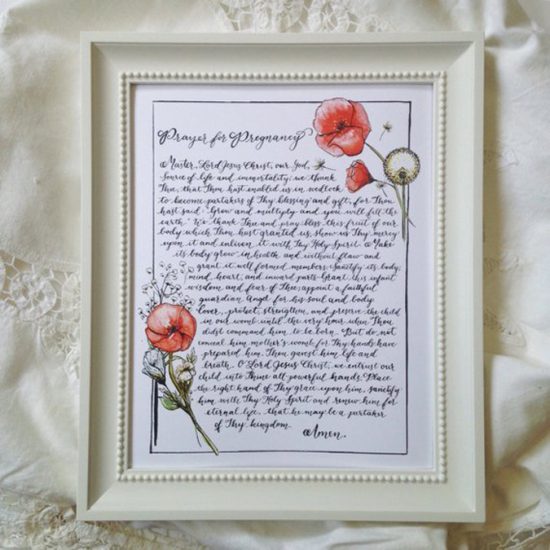 Prayer for Pregnancy
Master, Lord Jesus Christ, our God,
Source of life and immortality; we thank
Thee, that Thou hast enabled us in wedlock
to become partakers of Thy blessing and gift, for Thou
hast said: "Grow and multiply and you will fill the
earth." We thank Thee and pray: bless this fruit of our
body which Thou hast granted us, show us Thy mercy
upon it and enliven it with Thy Holy Spirit. Make
its body grow in health and without flaw and
grant it well formed members. Sanctify its body,
mind, heart, and inward parts. Grant this infant
wisdom and fear of Thee; appoint a faithful
guardian Angel for his soul and body.
, protect, strengthen, and preserve the child
in our womb until the very hour when Thou
didst command him to be born. But do not
conceal him mother's womb for Thy hands have
prepared him. Thou gavest him life and
breath. O Lord Jesus Christ, we entrust our
child into Thine all powerful hands. Place
the right hand of Thy grace upon him, sanctify
him with Thy Holy Spirit and renew him for
eternal life, that he may be a partaker
of Thy kingdom.
Amen.